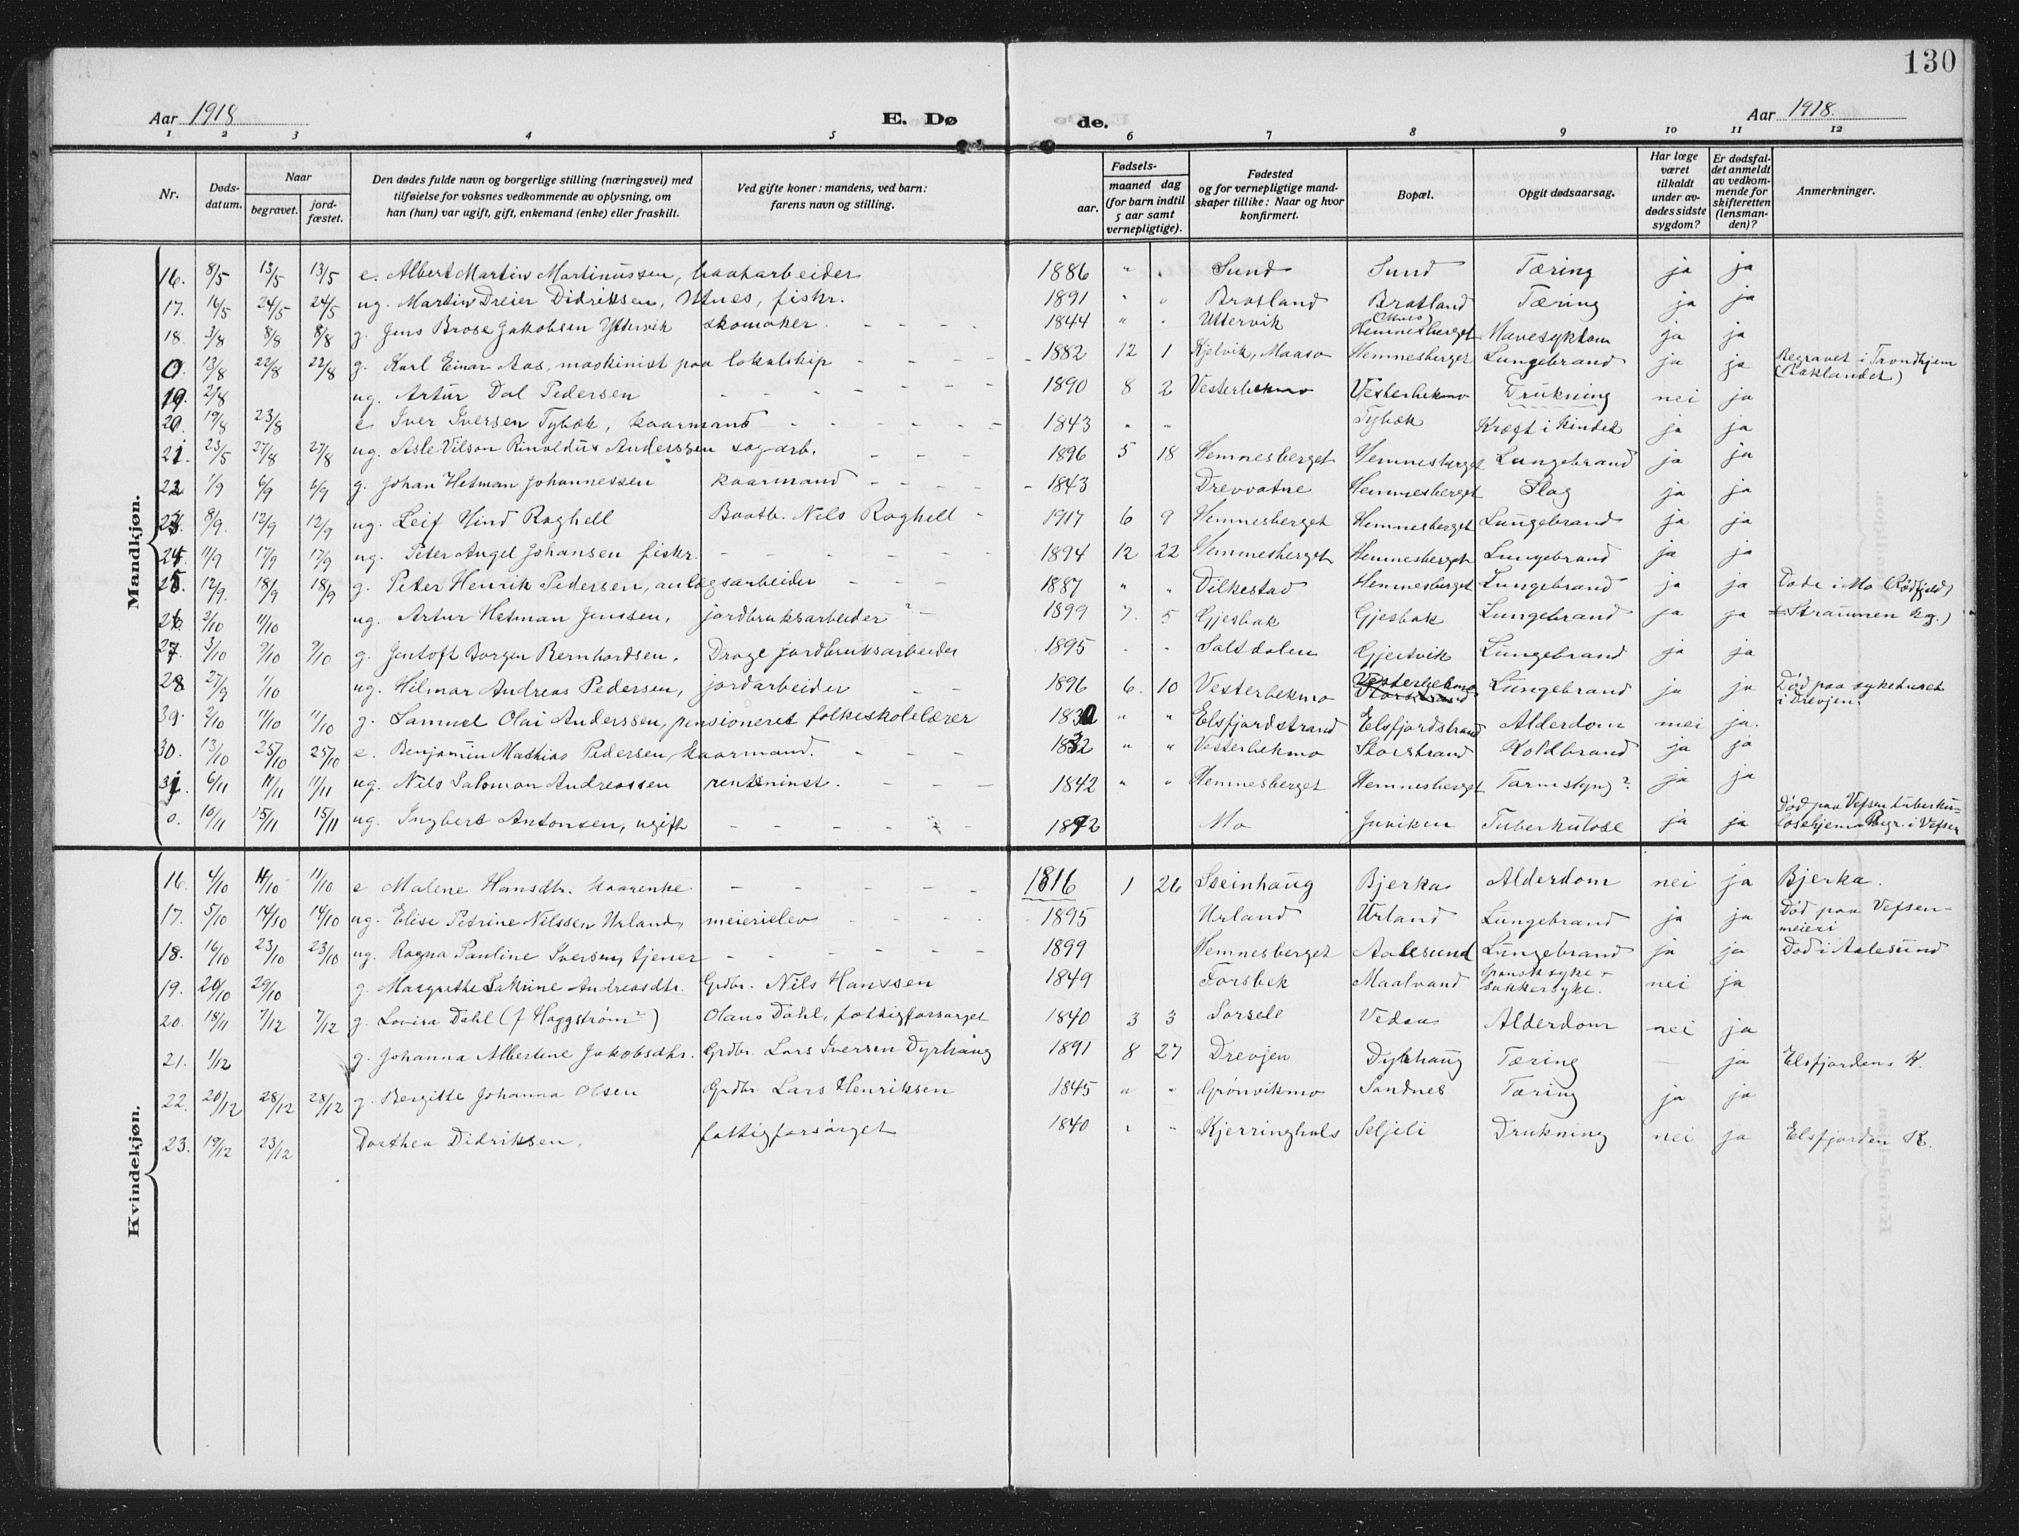 130
Aar 1918 E. Dø de. Aar 1918.
1 2 3 4 5 6 7 8 9 10 11 12
Nr. Døds-datum. Naar begravet. jord-fæstet. Den dødes fulde navn og borgerlige stilling (næringsvei) med tilføielse for voksnes vedkommende av oplysning, om han (hun) var ugift, gift, enkemand (enke) eller fraskilt. Ved gifte koner: mandens, ved barn: farens navn og stilling. Fødsels- aar. maaned dag (for barn indtil 5 aar samt vernepligtige). Fødested og for vernepligtige mandskaper tillike: Naar og hvor konfirmert. Bopæl. Opgit dødsaarsag. Har læge været tilkaldt under avdødes sidste sygdom? Er dødsfaldet anmeldt av vedkommende for skifteretten (lensmanden)? Anmerkninger.
Mandkjøn.
16. 8/5 13/5 13/5 e. Albert Martin Martinussen, baatarbeider 1886 " " Sund Sund Tæring ja ja
17. 16/5 24/5 24/5 ug. Martin Dreier Didriksen, Utnes, fiskr. 1891 " " Bratland Bratland (Utnes) Tæring ja ja
18. 3/8 8/8 8/8 g. Jens Brose Jakobsen Yttervik skomaker. 1844 " " Uttervik Hemnesberget Mavesykdom ja ja
0. 13/8 22/8 22/8 g. Karl Einar Aas, maskinist paa lokalskip 1882 12 1 Kjelvik, Maasø Hemnesberget Lungebrand ja ja Begravet i Trondhjem (Baklandet)
19. 2/8 ug. Artur Dal Pedersen 1890 8 2 Vesterbekmo Vesterbekmo Drukning nei ja
20. 19/8 23/8 e Iver Iversen Tybæk, kaarmand 1843 " " Tybæk Kræft i Kindet ja ja
21. 23/5 27/8 27/8 ug. Asle Vilson Rinoldus Anderssen sagarb. 1896 5 18 Hemnesberget Hemnesberget Lungebrand ja ja
22 1/9 6/9 6/9 g. Johan Hetman Johannessen kaarmand 1843 Drevvatne Hemnesberget Slag ja ja
23. 8/9. 12/9 12/9 ug. Leif Hind Raghell Baatb. Nils Raghell 1917 6 9 Hemnesberget Hemnesberget Lungebrand ja ja
24 11/9 17/9 17/9 ug. Peter Angel Johansen fiskr. 1894 12 22 Hemnesberget Hemnesberget Lungebrand ja ja
25 12/9. 18/9 18/9 g. Peter Henrik Pedersen, anlægsarbeider 1887 " " Dilkestad Hemnesberget Lungebrand ja ja Døde i Mo Rødfjeld
26 2/10 11/10 ug. Artur Hetman Jenssen, jordbruksarbeider ? 1899 7. 5 Gjesbak Gjesbak Lungebrand ja ja Straumen kg.)
27. 3/10 9/10 9/10 g. Jentoft Borgen Bernhardsen, Drage jordbruksarbeider 1895 " " Saltdalen Gjertvik Lungebrand ja ja
28 27/9 1/10 ug. Hilmar Andreas Pedersen, jordarbeider 1896 6. 10 Vesterbekmo Vesterbekmo Lungebrand ja ja Død paa sykehuset i Drevjen.
39. 2/10 11/10 11/10 g. Samuel Olai Anderssen, pensioneret folkeskolelærer 1830 " " Elsfjordstrand Elsfjordstrand Alderdom nei ja.
30. 13/10 25/10 25/10 e. Benjamin Mathias Pedersen, kaarmand. 1832 " " Vesterbekmo Storstrand Koldbrand ja ja
31. 6/11 11/11 11/11 ug. Nils Salomon Andreassen rentenist. 1842 " " Hemnesberget Hemnesberget Tarmslyng? ja ja
0. 10/11 15/11 15/11 ug. Ingbert Antonsen, ugift 1892 Mo Juviken Tuberkulose ja ja Død paa Vefsen tuberkulosehjem Begr. i Vefsen
Kvindekjøn.
16. 4/10 11/10 11/10 e Malene Hansdtr. kaarenke 1816 1 26 Steinhaug Bjerka Alderdom nei ja Bjerka.
17. 5/10 14/10 14/10 ug. Elise Petrine Nilssen Urland, meierielev 1895 Urland Urland Lungebrand ja ja Død paa Vefsen-meieri
18. 16/10 23/10 23/10 ug. Ragna Pauline Iversen, tjener 1899 Hemnesberget Aalesund Lungebrand ja ja Død i Aalesund
19. 20/10 29/10 g. Margrethe Katrine Andreasdtr. Grdbr. Nils Hanssen 1849 Forsbek Maalvand Spansk syke + sukkersyke. nei ja
20. 18/11 7/12 7/12 g. Lovisa Dahl (f Haggstrøm?) Olaus Dahl, fattigforsørget 1840 3 3 Sorsele Vedaa Alderdom nei ja
21. 1/12 g. Johanna Albertine Jakobsdtr. Grdbr. Lars Iversen Dyrhaug 1891 8 27 Drevjen Dyrhaug Tæring — ja Elsfjordens K.
22. 20/12 28/12 28/12 g. Bergitte Johanna Olsen Grdbr. Lars Henriksen 1845 " " Grønvikmo Sandnes Tæring ja ja
23. 19/12 23/12 Dorthea Didriksen, fattigforsørget 1840 " " Kjerringhals Seljeli Drukning nei ja Elsfjorden K.